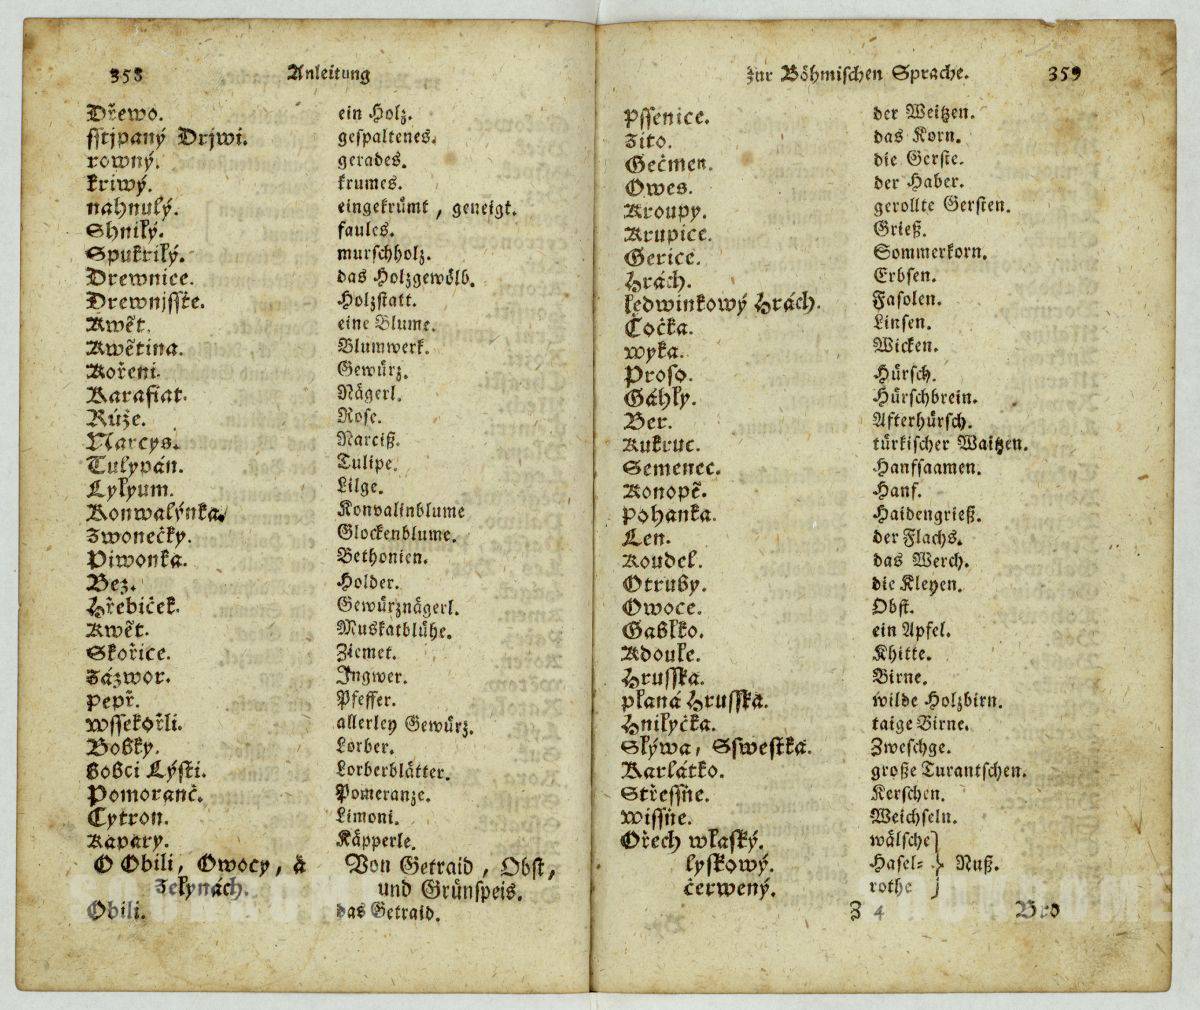 358 Anleitung
Dřewo. ein Holz.
sstjpaný Drjwi. gespaltenes.
rowný. gerades.
křiwý. krumes.
nahnulý. eingekrümt, geneigt.
Shnilý. faules.
Spukřilý. murschholz.
Drewnice. das Holzgewölb.
Drewnjsste. Holzstatt.
Kwět. eine Blume.
Kwětina. Blumwerk.
Kořeni. Gewürz.
Karafiat. Nägerl.
Růže. Rose.
Narcys. Narciß.
Tulypán. Tulipe.
Lylyum. Lilge.
Konwalýnka. Konvalinblume
Zwonečky. Glockenblume.
Piwonka. Bethonien.
Bez. Holder.
Hřebiček. Gewürznägerl.
Kwět. Muskatblühe.
Skořice. Ziemet.
Zázwor. Ingwer.
Pepř. Pfeffer.
wssekořli. allerley Gewürz.
Bobky. Lorber.
bobci Lýsti. Lorberblätter.
Pomoranč. Pomeranze.
Cytron. Limoni.
Kapary. Käpperle.
O Obili, Owocy, á Von Getraid, Obst,
Zelynách. und Grünspeis.
Obili. das Getraid.
zur Böhmischen Sprache. 359
Pssenice. der Weitzen.
Žito. das Korn.
Gečmen. die Gerste.
Owes. der Haber.
Kroupy. gerollte Gersten.
Krupice. Grieß.
Gerice. Sommerkorn.
Hrách. Erbsen.
ledwinkowý Hrách. Fasolen.
Čočka. Linsen.
wyka. Wicken.
Proso. Hürsch.
Gáhly. Hürschbrein.
Ber. Afterhürsch.
Kukruc. türkischer Waitzen.
Semenec. Hanfsaamen.
Konopě. Hanf.
Pohanka. Haidengrieß.
Len. der Flachs.
Koudel. das Werch.
Otruby. die Kleyen.
Owoce. Obst.
Gablko. ein Apfel.
Kdoule. Khitte.
Hrusska. Birne.
planá Hrusska. wilde Holzbirn.
Hnilyčka. taige Birne.
Slýwa, Sswestka. Zweschge.
Karlátko. große Turantschen.
Střessně. Kerschen.
wissně. Weichseln.
Ořech wlaský. wälsche
lyskowý. Hasel= } Nuß.
čerwený. rothe
Z 4 Bro